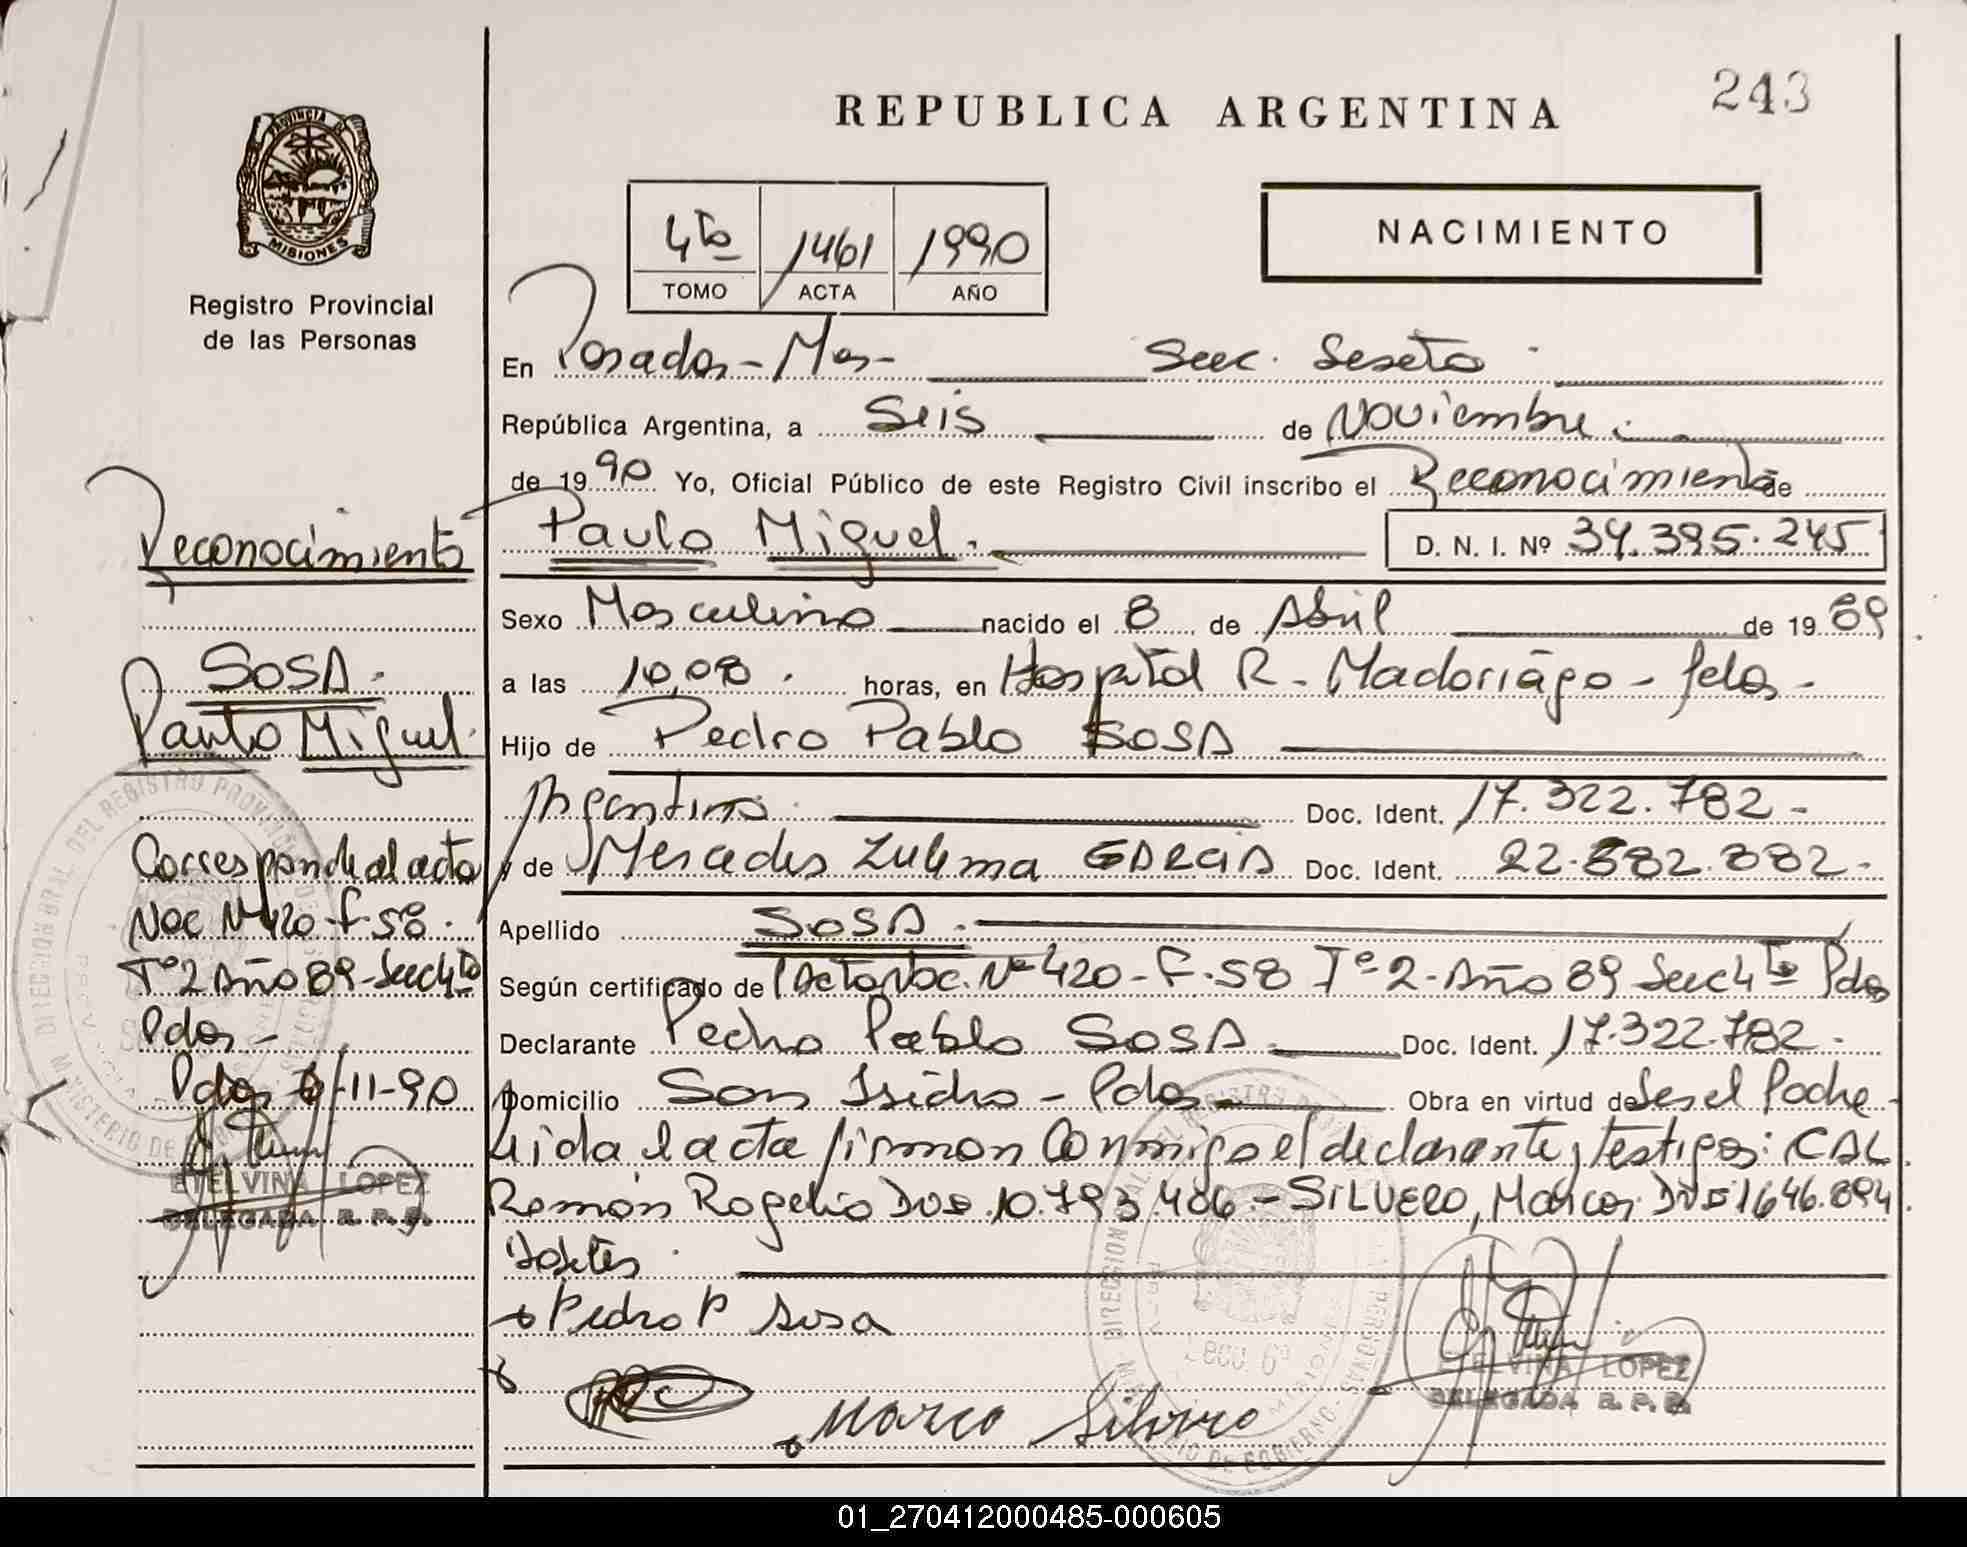 243
REPUBLICA ARGENTINA
PROVINCIA DE
MISIONES
Registro Provincial
de las Personas
4to 1461 1990
TOMO ACTA AÑO
NACIMIENTO
En Posadas - Mnes - Secc. Sexta
República Argentina, a Seis de Noviembre
de 1990 Yo, Oficial Público de este Registro Civil inscribo el Reconocimiento de
Paulo Miguel. D. N. I. Nº 34.395.245
Sexo Masculino nacido el 8 de Abril de 1989
a las 10,08 horas, en Hospital R. Madariaga -
Hijo de Pedro Pablo SOSA
Argentino Doc. Ident. 17.322.782 -
y de Mercedes Zulema GARCIA Doc. Ident. 22.882.
Apellido SOSA.
Según certificado de Acta Nac. Nº 420 - F. 58 Tº 2 - Año 89 Secc 4ta Pdas
Declarante Pedro Pablo SOSA Doc. Ident. 17.322.782 -
Domicilio San Isidro - Pdas Obra en virtud de Ser el Padre -
Leida el acta firman conmigo el declarante y testigos: CAL
Ramón Rogelio DNI. 10.793.406 - SILVERO, Marcos DNI 1646.894
Pedro P Sosa
Marco Silvero
Reconocimiento
SOSA.
Paulo Miguel.
Corresponde al acta
Nac Nº 420 - F. 58.
Tº 2 Año 89 - Secc 4ta
Pdas -
Pdas 6/-11-90
ETELVINA LOPEZ
DELEGADA R. P. P.
ETELVINA LOPEZ
DELEGADA R. P. P.
01_270412000485-000605